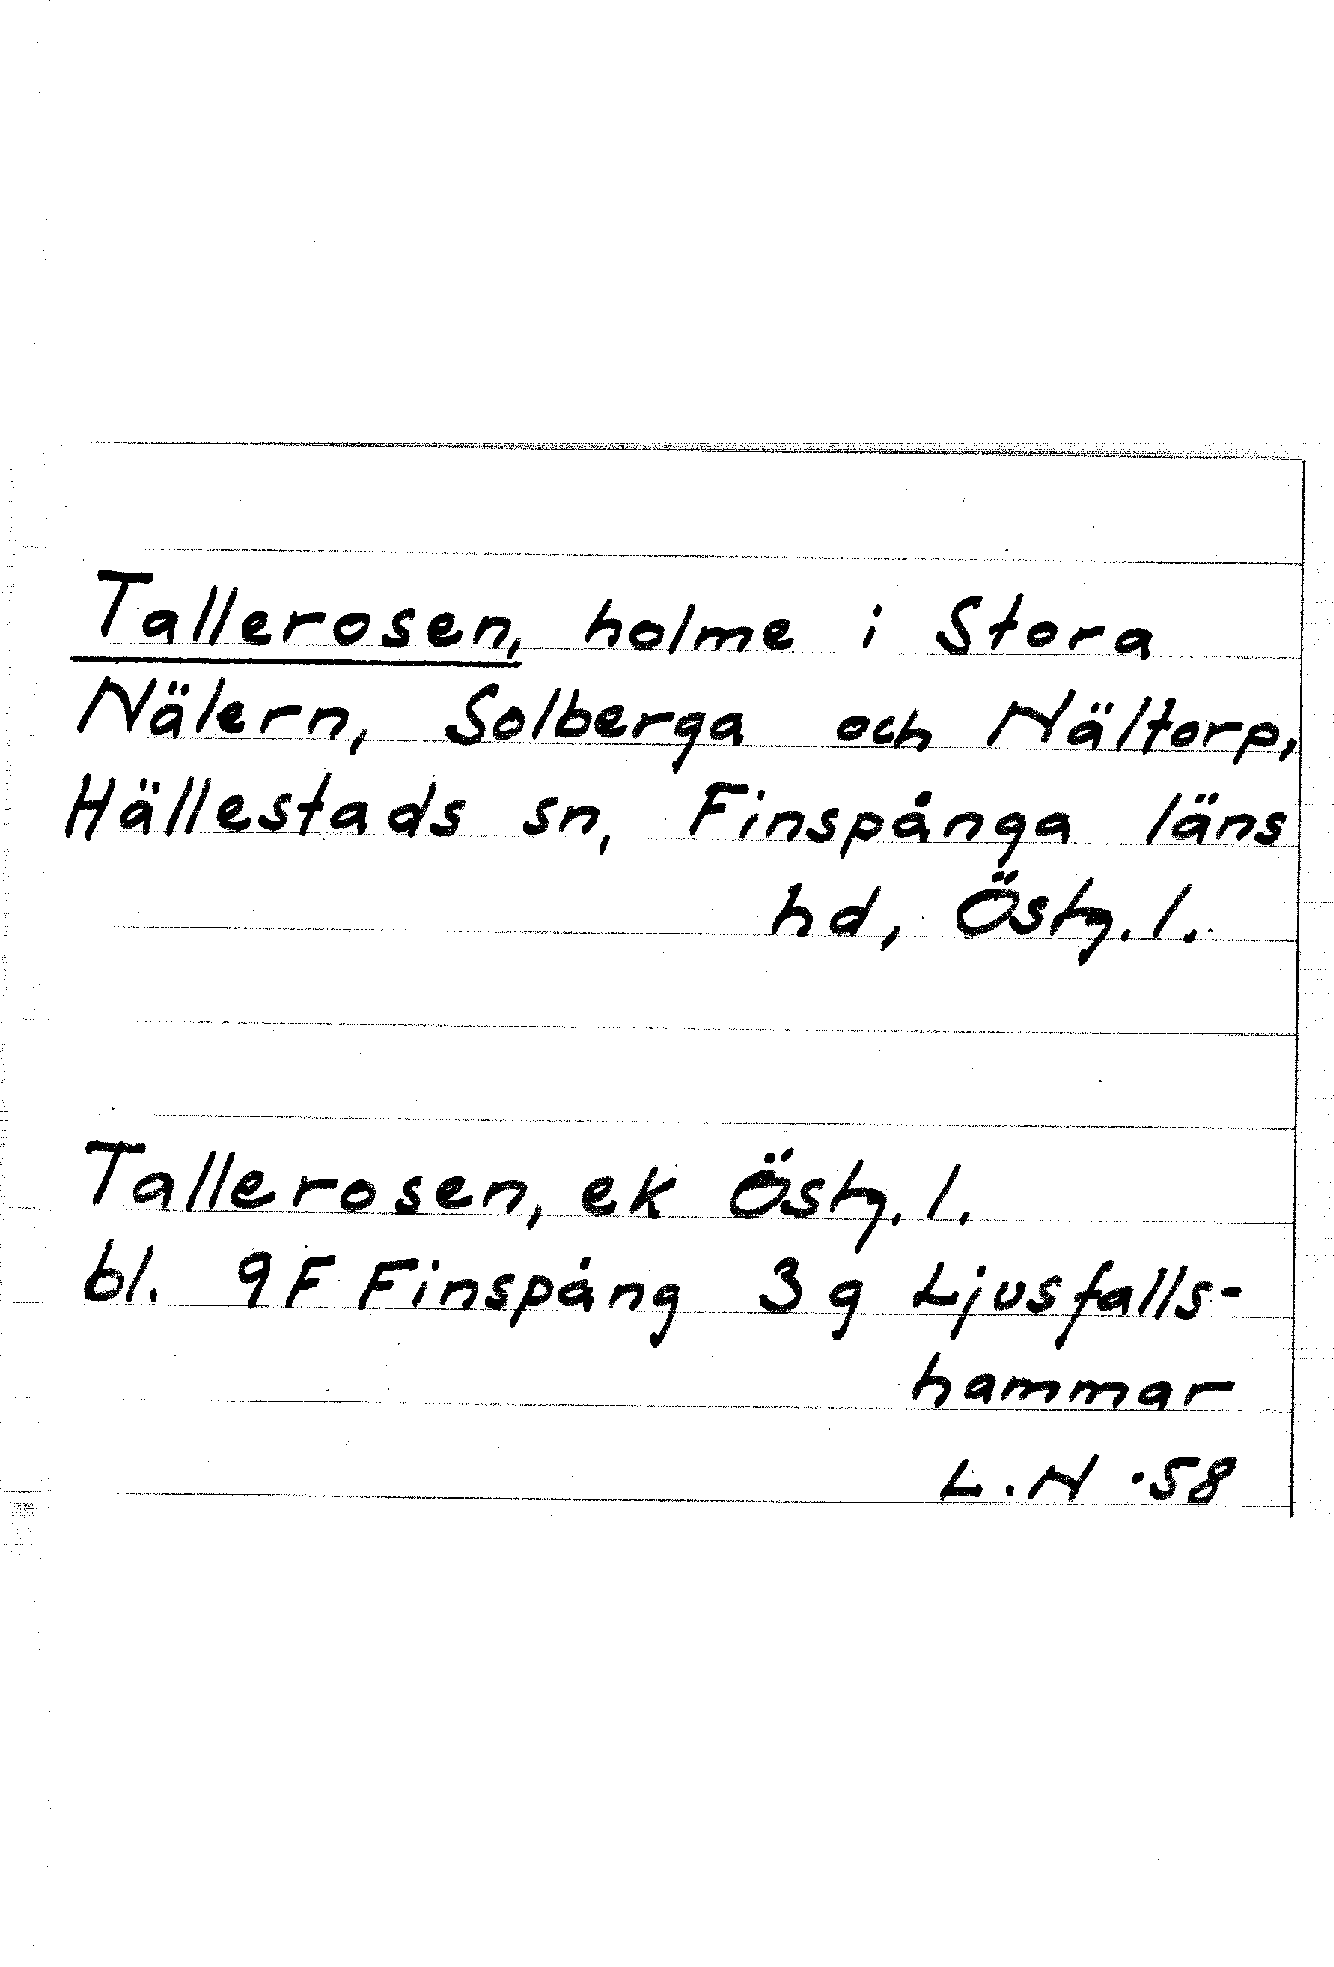 Tallerosen, holme i Stora
Nälern, Solberga och Nältorp,
Hällestads sn, Finspånga läns
hd, Östg. l.
Tallerosen, ek Östg. l.
bl. 9F Finspång 3g Ljusfalls-
hammar
L.N ·58